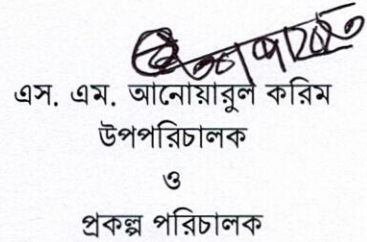 এস. এম. আনোয়ারুল করিম
উপপরিচালক
ও
প্রকল্প পরিচালক